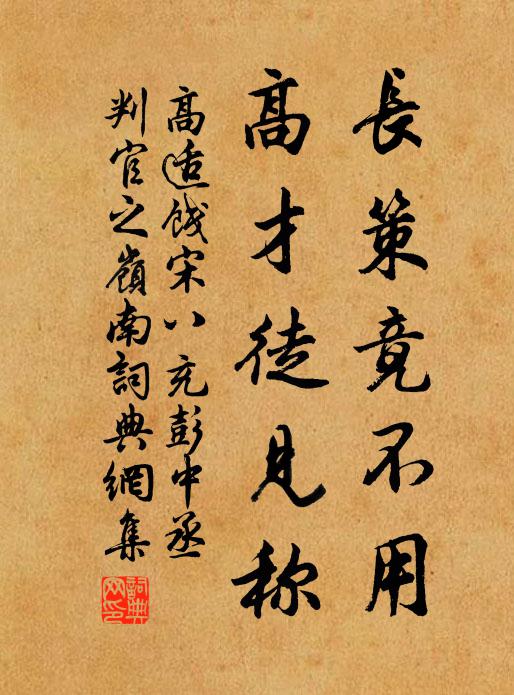 長策竟不用
高才徒見称
高适餞宋八充彭中丞
判官之嶺南詞典網集
詞典网印